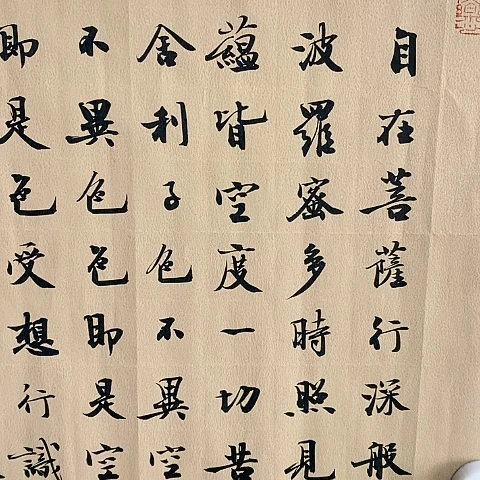 自在菩薩行深般
波羅蜜多時照見
蘊皆空度一切苦
舍利子色不異空
不異色色即是空
即是色受想行識